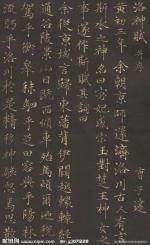 洛神賦 并序
曹子建
黃初三年余朝京師還濟洛川古人有言
斯水之神名曰宓妃感宋玉對楚王神女之
事遂作斯賦其詞曰
余從京域言歸東藩背伊闕越轘轅經
通谷陵景山日既西傾車殆馬煩爾迺稅
駕乎蘅皋秣駟乎芝田容與乎陽林
流眄乎洛川於是精移神駭忽焉思散